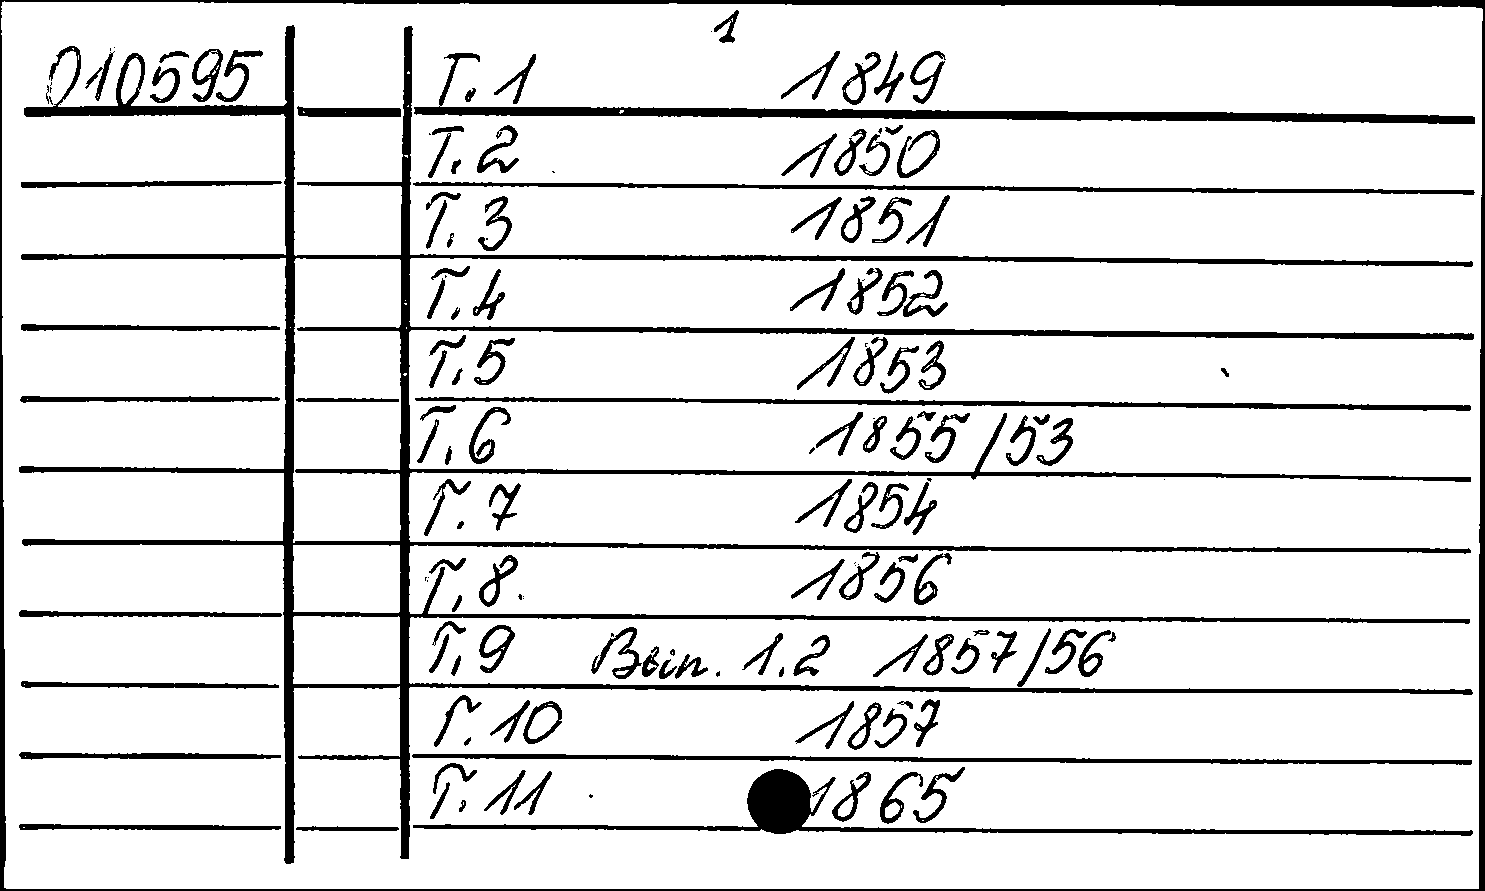 1
010595 Т. 1 1849
Т. 2 1850
Т. 3 1851
Т. 4 1852
Т. 5 1853
Т. 6 1855/53
Т. 7 1854
Т. 8. 1856
Т. 9 Вып. 1.2 1857/56
Т. 10 1857
Т. 11 1865